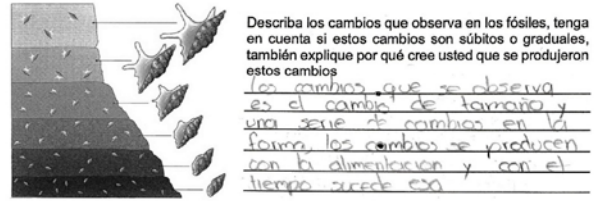 Describa los cambios que observa en los fósiles, tenga
en cuenta si estos cambios son súbitos o graduales,
también explique por qué cree usted que se produjeron
estos cambios
los cambios que se observa
es el cambio de tamaño y
una serie de cambios en la
forma, los cambios se producen
con la alimentacion y con el
tiempo sucede eso